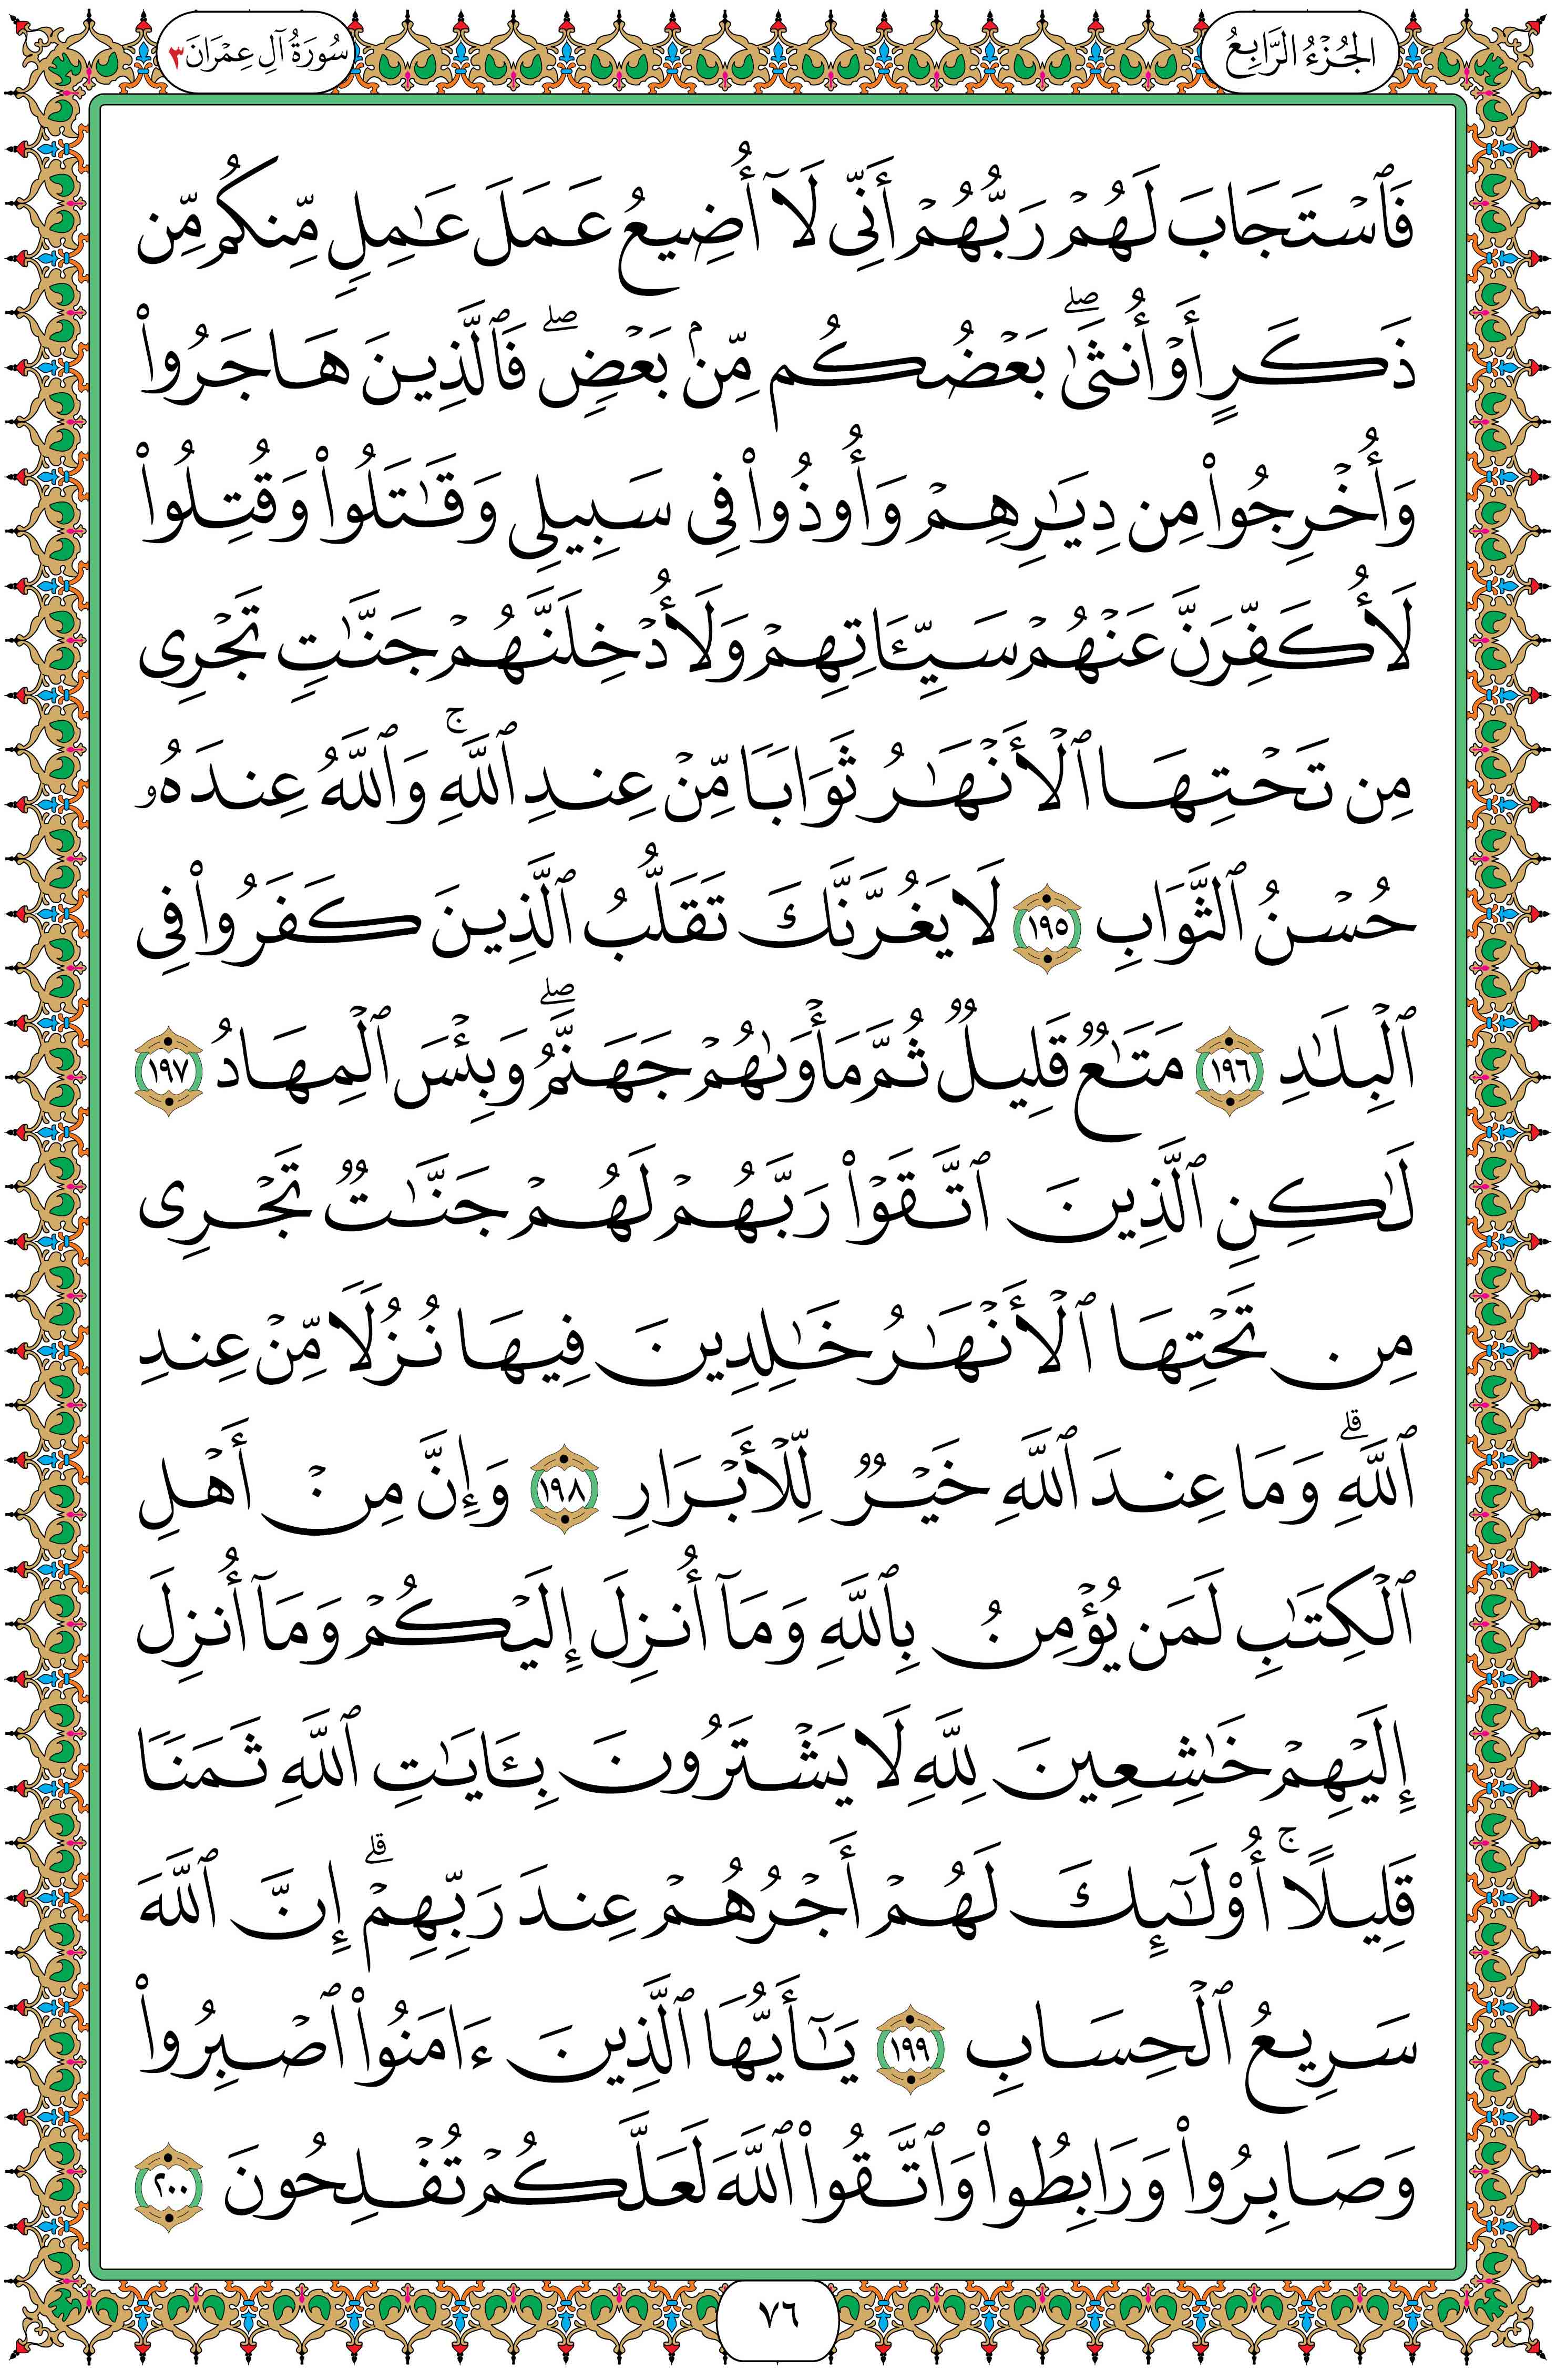 الجُزْءُ الرَّابِعُ
سُورَةُ آلِ عِمْرَانَ ٣
فَٱسْتَجَابَ لَهُمْ رَبُّهُمْ أَنِّى لَآ أُضِيعُ عَمَلَ عَٰمِلٍ مِّنكُم مِّن
ذَكَرٍ أَوْ أُنثَىٰ ۖ بَعْضُكُم مِّنۢ بَعْضٍ ۖ فَٱلَّذِينَ هَاجَرُوا۟
وَأُخْرِجُوا۟ مِن دِيَٰرِهِمْ وَأُوذُوا۟ فِى سَبِيلِى وَقَٰتَلُوا۟ وَقُتِلُوا۟
لَأُكَفِّرَنَّ عَنْهُمْ سَيِّـَٔاتِهِمْ وَلَأُدْخِلَنَّهُمْ جَنَّٰتٍ تَجْرِى
مِن تَحْتِهَا ٱلْأَنْهَٰرُ ثَوَابًا مِّنْ عِندِ ٱللَّهِ ۚ وَٱللَّهُ عِندَهُۥ
حُسْنُ ٱلثَّوَابِ ١٩٥ لَا يَغُرَّنَّكَ تَقَلُّبُ ٱلَّذِينَ كَفَرُوا۟ فِى
ٱلْبِلَٰدِ ١٩٦ مَتَٰعٌ قَلِيلٌ ثُمَّ مَأْوَىٰهُمْ جَهَنَّمُ ۖ وَبِئْسَ ٱلْمِهَادُ ١٩٧
لَٰكِنِ ٱلَّذِينَ ٱتَّقَوْا۟ رَبَّهُمْ لَهُمْ جَنَّٰتٌ تَجْرِى
مِن تَحْتِهَا ٱلْأَنْهَٰرُ خَٰلِدِينَ فِيهَا نُزُلًا مِّنْ عِندِ
ٱللَّهِ ۗ وَمَا عِندَ ٱللَّهِ خَيْرٌ لِّلْأَبْرَارِ ١٩٨ وَإِنَّ مِنْ أَهْلِ
ٱلْكِتَٰبِ لَمَن يُؤْمِنُ بِٱللَّهِ وَمَآ أُنزِلَ إِلَيْكُمْ وَمَآ أُنزِلَ
إِلَيْهِمْ خَٰشِعِينَ لِلَّهِ لَا يَشْتَرُونَ بِـَٔايَٰتِ ٱللَّهِ ثَمَنًا
قَلِيلًا ۚ أُو۟لَٰٓئِكَ لَهُمْ أَجْرُهُمْ عِندَ رَبِّهِمْ ۗ إِنَّ ٱللَّهَ
سَرِيعُ ٱلْحِسَابِ ١٩٩ يَٰٓأَيُّهَا ٱلَّذِينَ ءَامَنُوا۟ ٱصْبِرُوا۟
وَصَابِرُوا۟ وَرَابِطُوا۟ وَٱتَّقُوا۟ ٱللَّهَ لَعَلَّكُمْ تُفْلِحُونَ ٢٠٠
٧٦